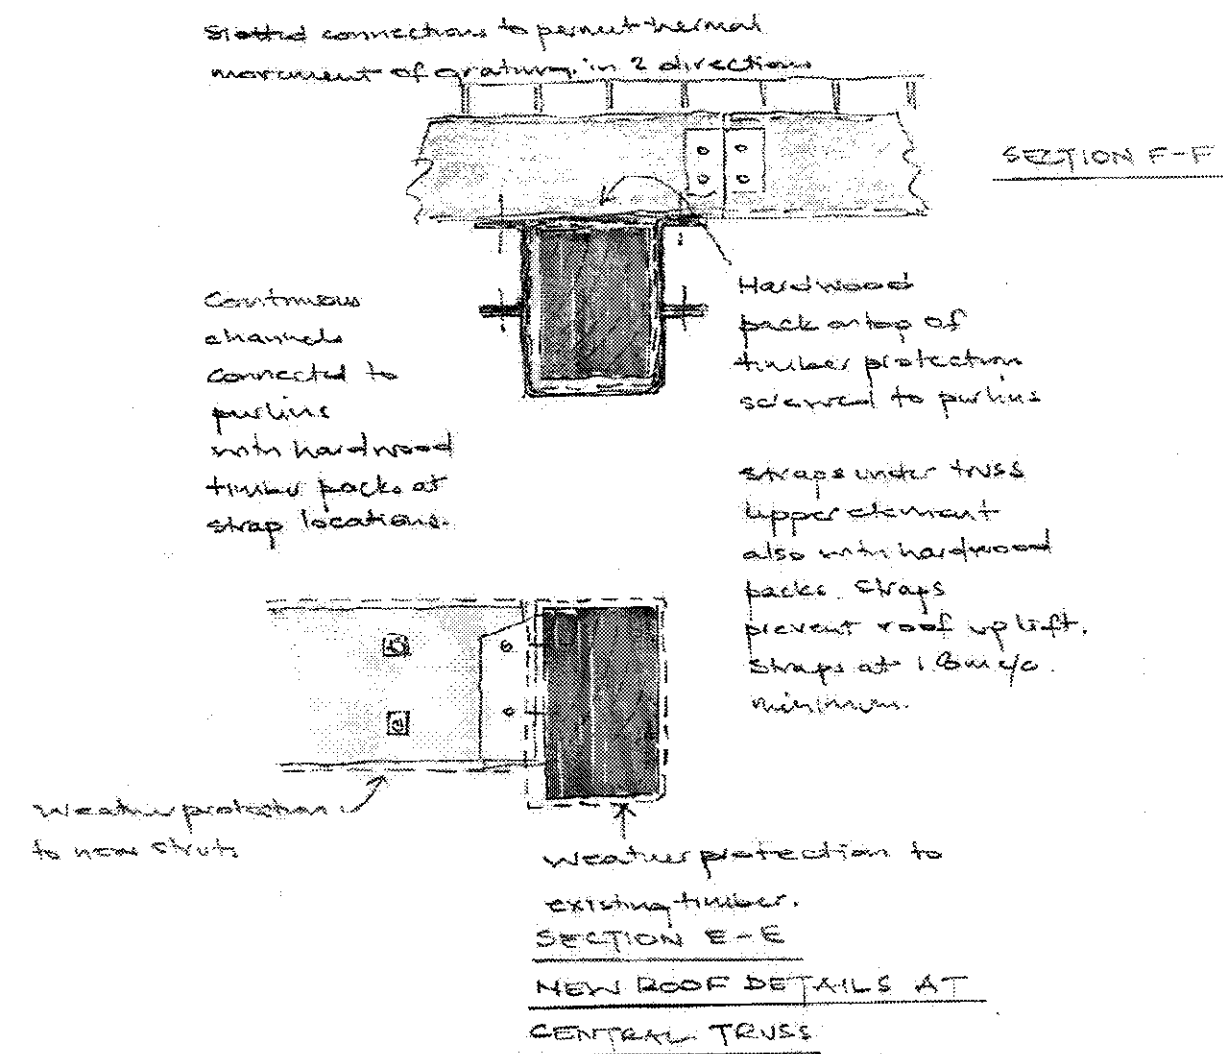 Slotted connections to permit thermal
movement of grating in 2 directions
SECTION F-F
Continuous
channels
connected to
purlins
with hardwood
timber packs at
strap locations.
Hardwood
pack on top of
timber protection
screwed to purlins
straps under truss
upper element
also with hardwood
packs. Straps
prevent roof uplift.
Straps at 1.8m c/c.
minimum.
Weather protection
to new strut.
Weather protection to
existing timber.
SECTION E-E
NEW ROOF DETAILS AT
CENTRAL TRUSS